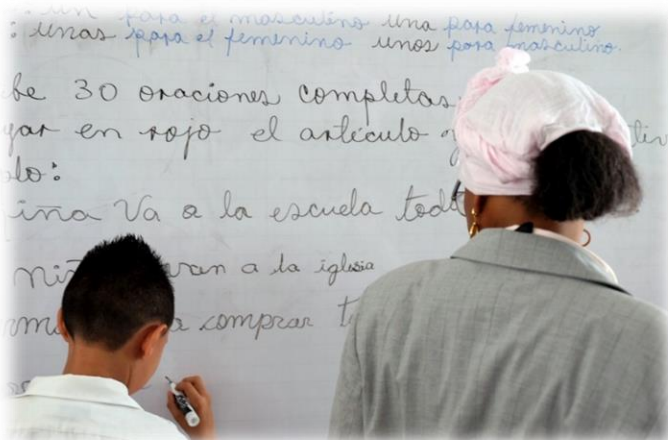 : un para el masculino una para femenino
: unas para el femenino unos para masculino.
be 30 oraciones completas
yar en rojo el artículo
plo:
iña Va a la escuela tod
niñ van a la iglesia
rma a comprar t